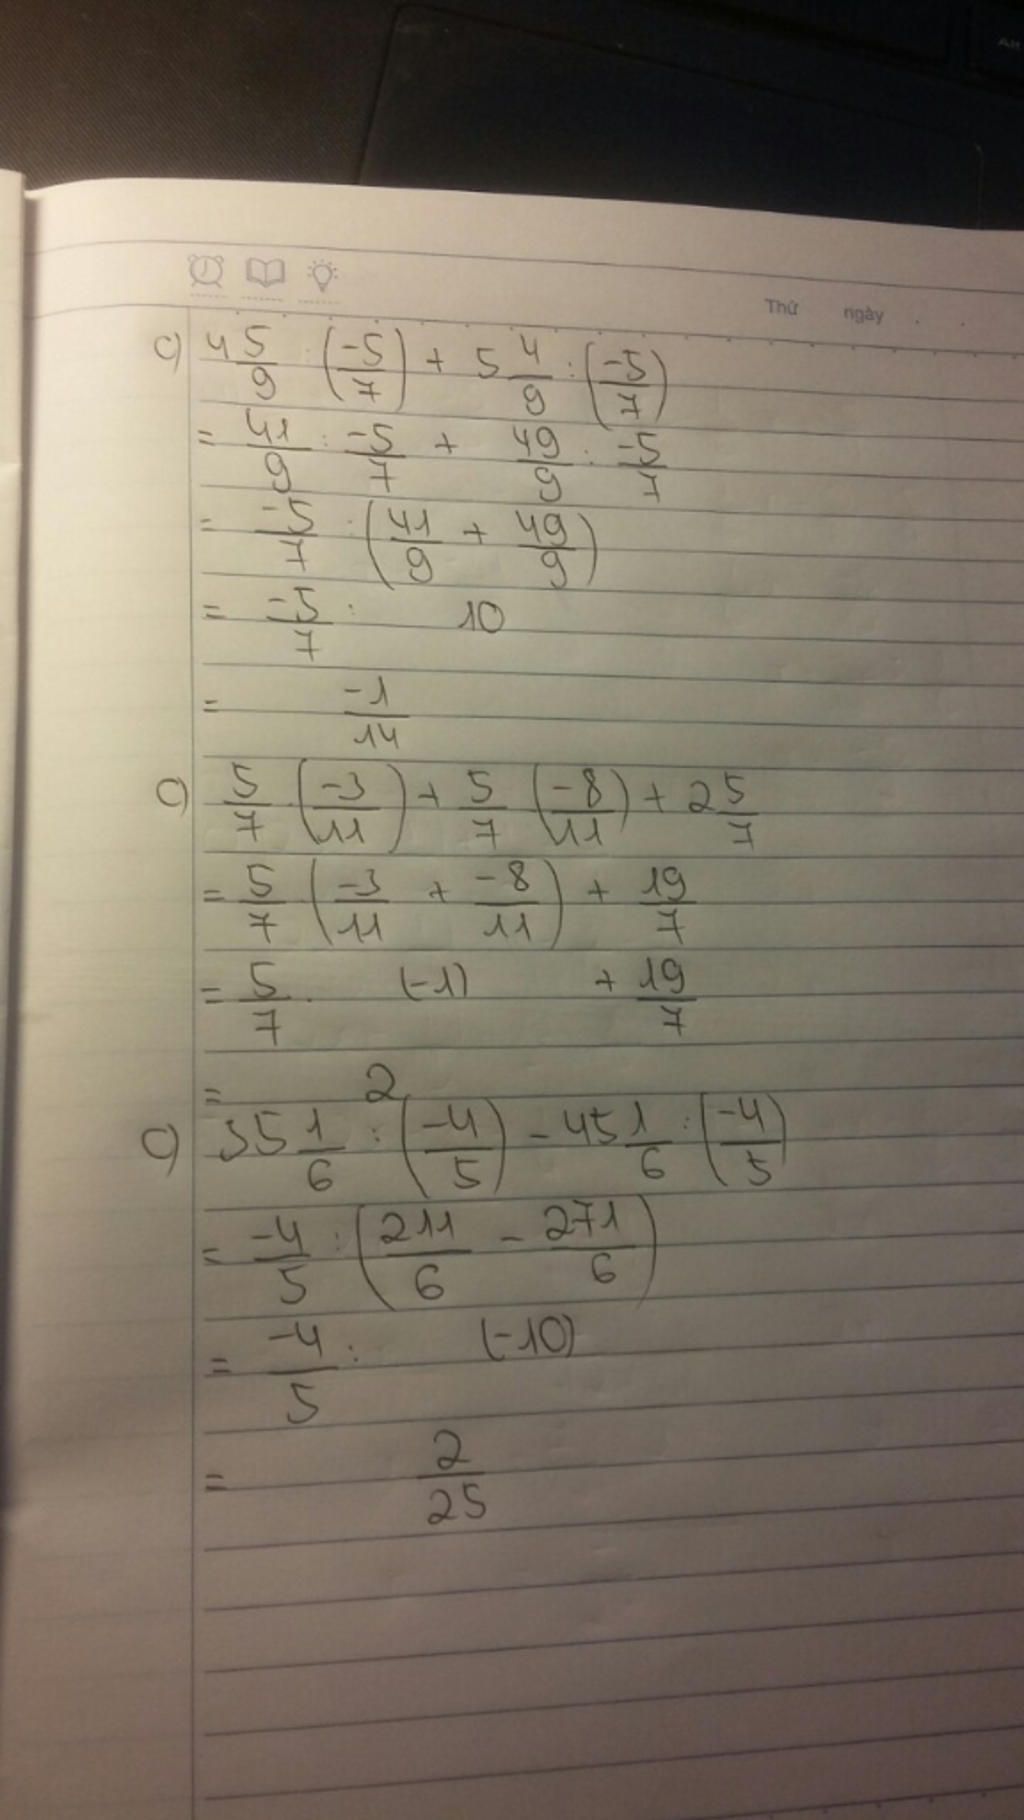 Alt
Thứ ngày
c) 4 5/9 : (-5/7) + 5 4/9 : (-5/7)
= 41/9 : -5/7 + 49/9 : -5/7
= -5/7 : (41/9 + 49/9)
= -5/7 : 10
= -1/14
c) 5/7 . (-3/11) + 5/7 (-8/11) + 2 5/7
= 5/7 (-3/11 + -8/11) + 19/7
= 5/7 . (-1) + 19/7
= 2
c) 35 1/6 : (-4/5) - 45 1/6 : (-4/5)
= -4/5 : (211/6 - 271/6)
= -4/5 : (-10)
= 2/25